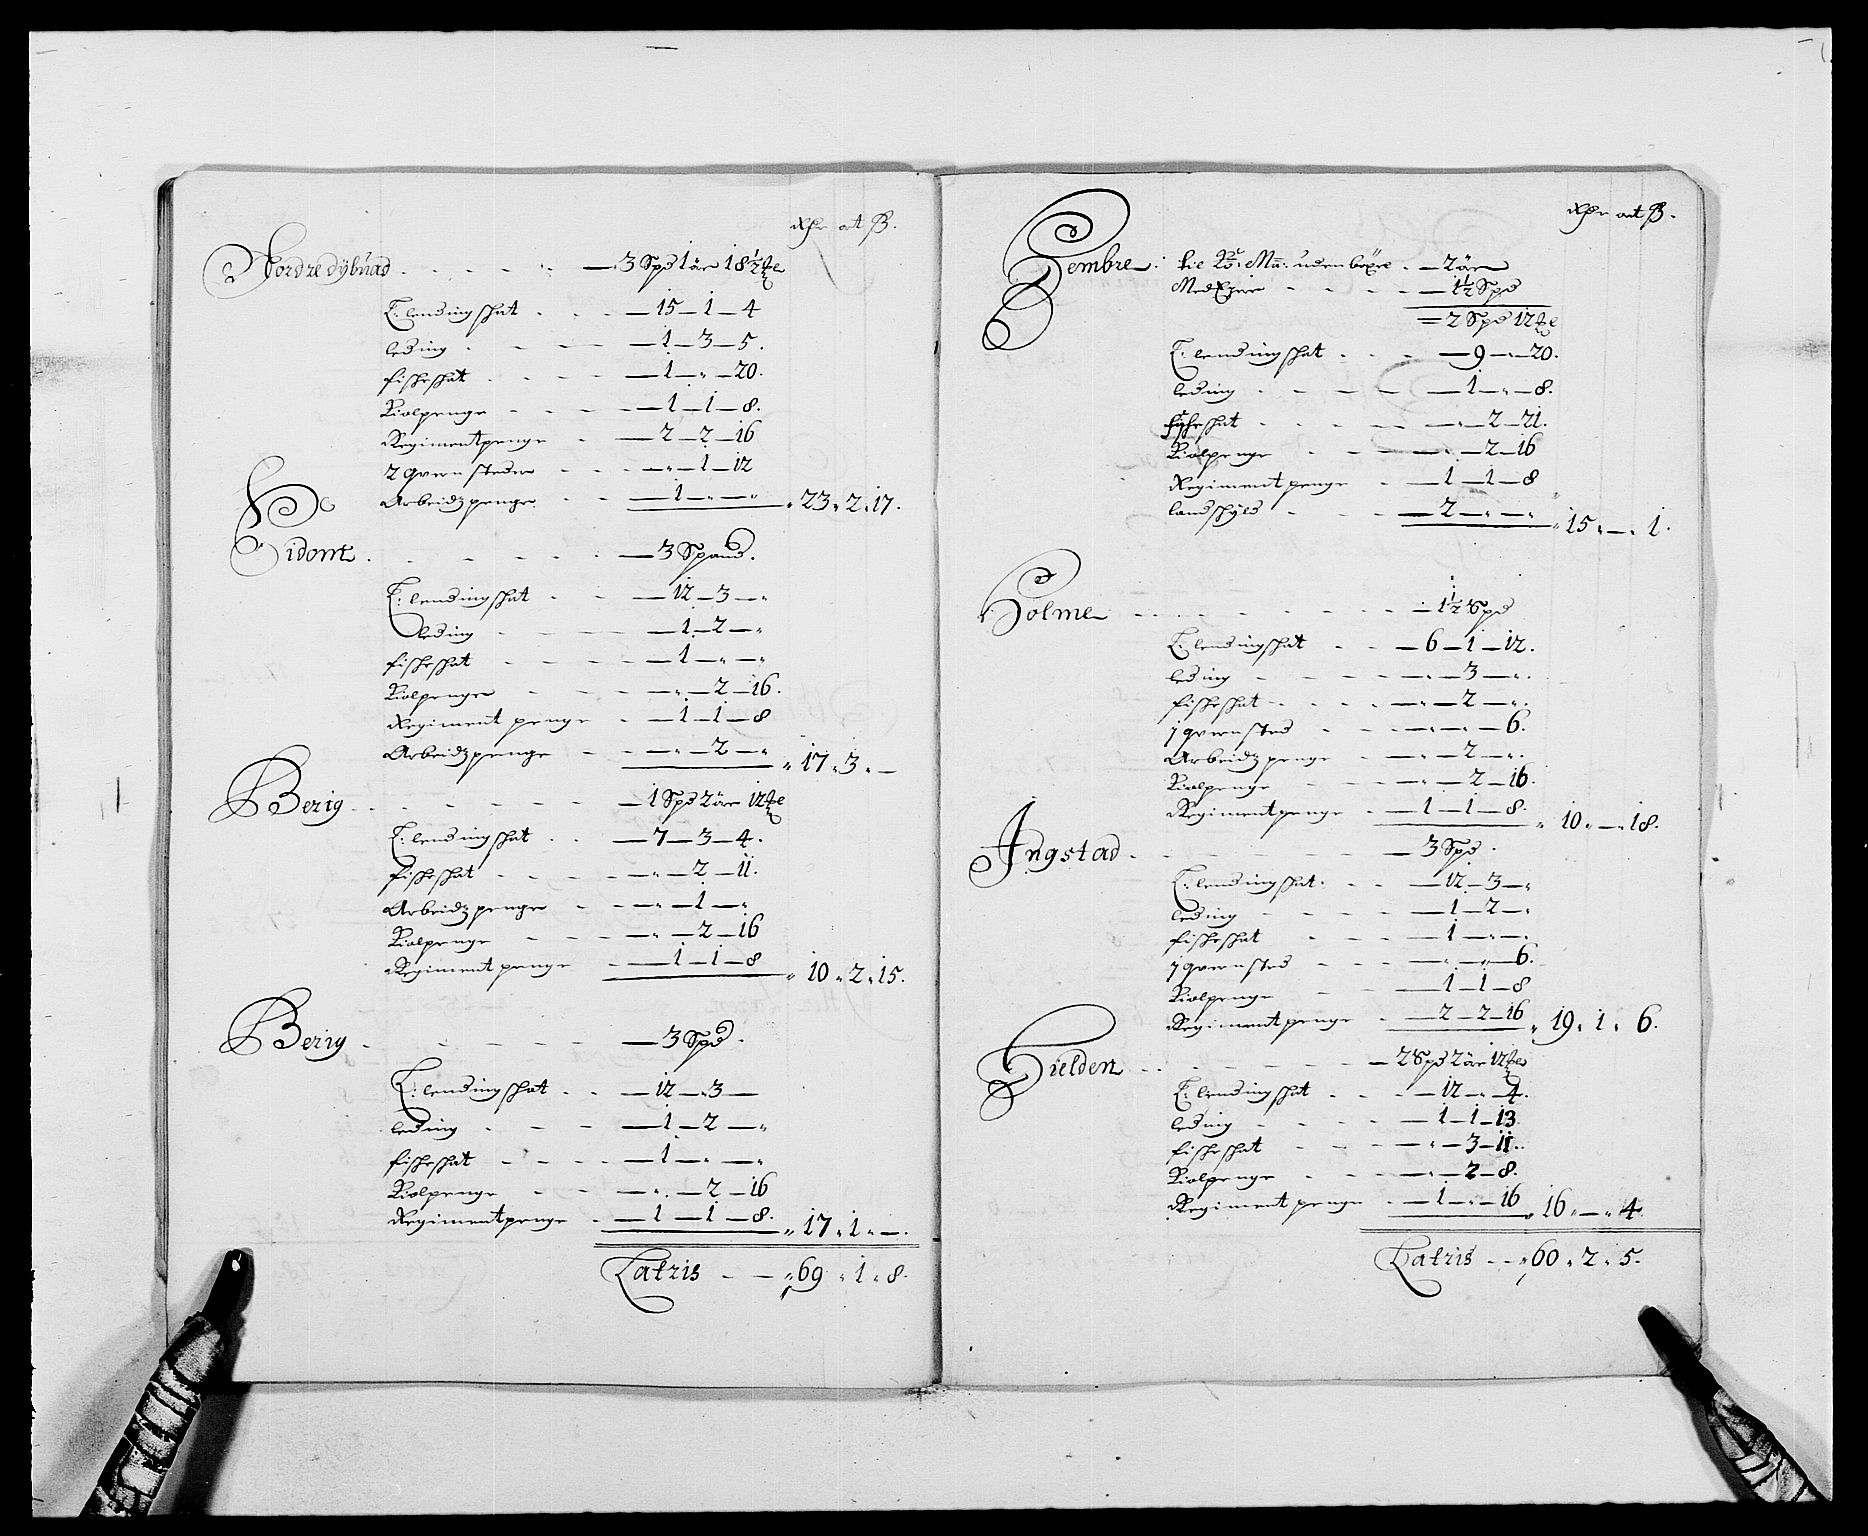 Rdr ort ß.
Nordre dÿbuad — 3 Spd 1 ör 18½
E: lendingskat — 15 — 1 — 4
leding — 1 — 3 — 5.
fiskeskat — 1 — „ — 20.
Kiolpenge — 1 — 1 — 8.
Regimentpenge — 2 — 2 — 16
2 qvernsteder — „ — 1 — 12
Arbeidzpenge — 1 — „ — „ „ 23 „ 2 „ 17.
Sidomt — 3 Spand.
E: lendingskat — 12 — 3 — „
leding — 1 — 2 — „
fiskeskat — 1 — „ — „
Kiolpenge — „ — 2 — 16.
Regiment penge — 1 — 1 — 8
Arbeidzpenge — „ — 2 — „ „ 17 „ 3 „ —
Berig — 1 Spd 2 ör 12
E: lendingskat — 7 — 3 — 4.
fiskeskat — „ — 2 — 11.
Arbeidzpenge — „ — 1 — „
Kiolpenge — „ — 2 — 16
Regiment penge — 1 — 1 — 8 „ 10 „ 2 „ 15.
Berig — 3 Spd.
E: lendingskat — 12 — 3 —
leding — 1 — 2 — „
fiskeskat — 1 — „ — „
Kiolpenge — „ — 2 — 16
Regimentpenge — 1 — 1 — 8. „ 17 „ 1 „ —.
Latris — „ 69 „ 1 „ 8.
Rdr ort ß.
Sembre: uden böxel — 2 ör
Med — 1½ Spd
= 2 Spd 12
E: lendingskat — 9 — „ — 20.
leding — 1 — „ — 8.
fiskeskat — „ — 2 — 21.
Kiolpenge — „ — 2 — 16
Regiment penge — 1 — 1 — 8
landskÿld — 2 — „ — „ „ 15 „ — „ 1.
Holme — 1½ Spd
E: lendingskat — 6 — 1 — 12.
leding — „ — 3 — „.
fiskeskat — „ — 2 — „.
1 qvernsted — „ — „ — 6.
Arbeidzpenge — „ — 2 — „.
Kiolpenge — „ — 2 — 16.
Regimentpenge — 1 — 1 — 8. „ 10 „ — „ 18.
Ingstad — 3 Spd.
E: lendingskat — 12 — 3 — „
leding — 1 — 2 — „
fiskeskat — 1 — „ — „
1 qvernsted — „ — „ — 6.
Kiolpenge — 1 — 1 — 8
Regimentpenge — 2 — 2 — 16 „ 19 „ 1 „ 6.
Gielden — 2 Spd 2 ör 12
E: lendingskat — 12 — „ — 4.
leding — 1 — 1 — 13
fiskeskat — „ — 3 — 11.
Kiolpenge — „ — 2 — 8.
Regiment penge — 1 — „ — 16 „ 16 „ — „ 4
Latris — „ 60 „ 2 „ 5.